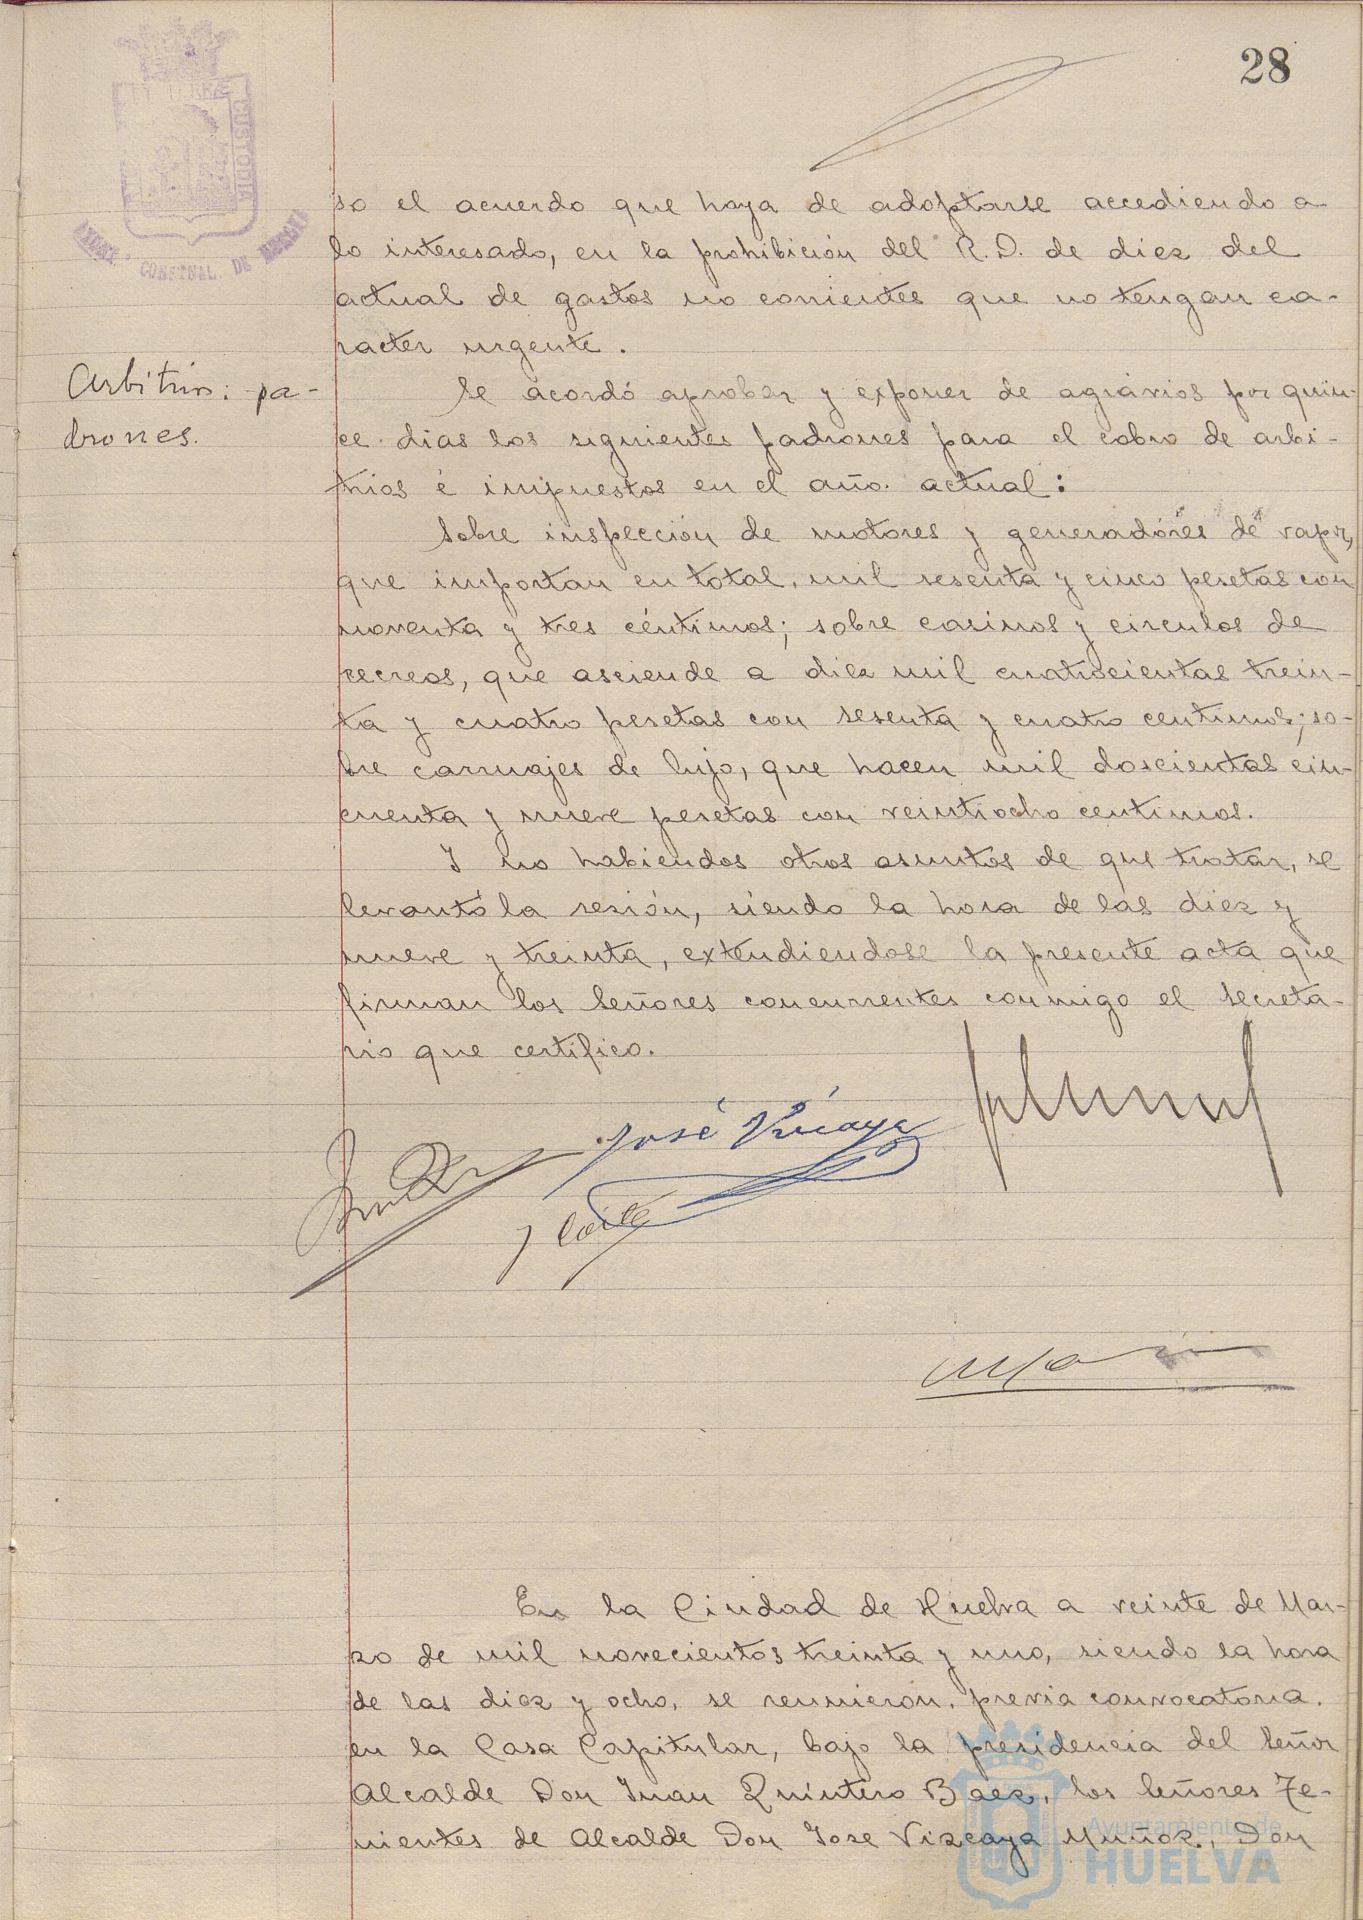 28
TERRÆ
CUSTODIA
CONSTNAL. DE
so el acuerdo que haya de adoptarse accediendo a
lo interesado, en la prohibición del R.D. de diez del
actual de gastos no corrientes que no tengan ca-
racter urgente.
Arbitrios: pa-
drones.
Se acordó aprobar y exponer de agravios por quin-
ce dias los siguientes padrones para el cobro de arbi-
trios é impuestos en el año actual:
Sobre inspección de motores y generadores de vapor,
que importan en total, mil sesenta y cinco pesetas con
noventa y tres céntimos; sobre casinos y circulos de
recreos, que asciende a diez mil cuatrocientas trein-
ta y cuatro pesetas con sesenta y cuatro centimos; so-
bre carruajes de lujo, que hacen mil doscientas cin-
cuenta y nueve pesetas con veintiocho centimos.
Y no habiendos otros asuntos de que tratar, se
levantó la sesión, siendo la hora de las diez y
nueve y treinta, extendiendose la presente acta que
firman los Señores concurrentes conmigo el Secreta-
rio que certifico.
José Vizcaya
En la Ciudad de Huelva a veinte de Mar-
zo de mil novecientos treinta y uno, siendo la hora
de las diez y ocho, se reunieron, previa convocatoria.
en la Casa Capitular, bajo la presidencia del Señor
Alcalde Don Juan Quintero Baez, los Señores Te-
nientes de Alcalde Don Jose Vizcaya Muñoz, Don
Ayuntamiento de
HUELVA